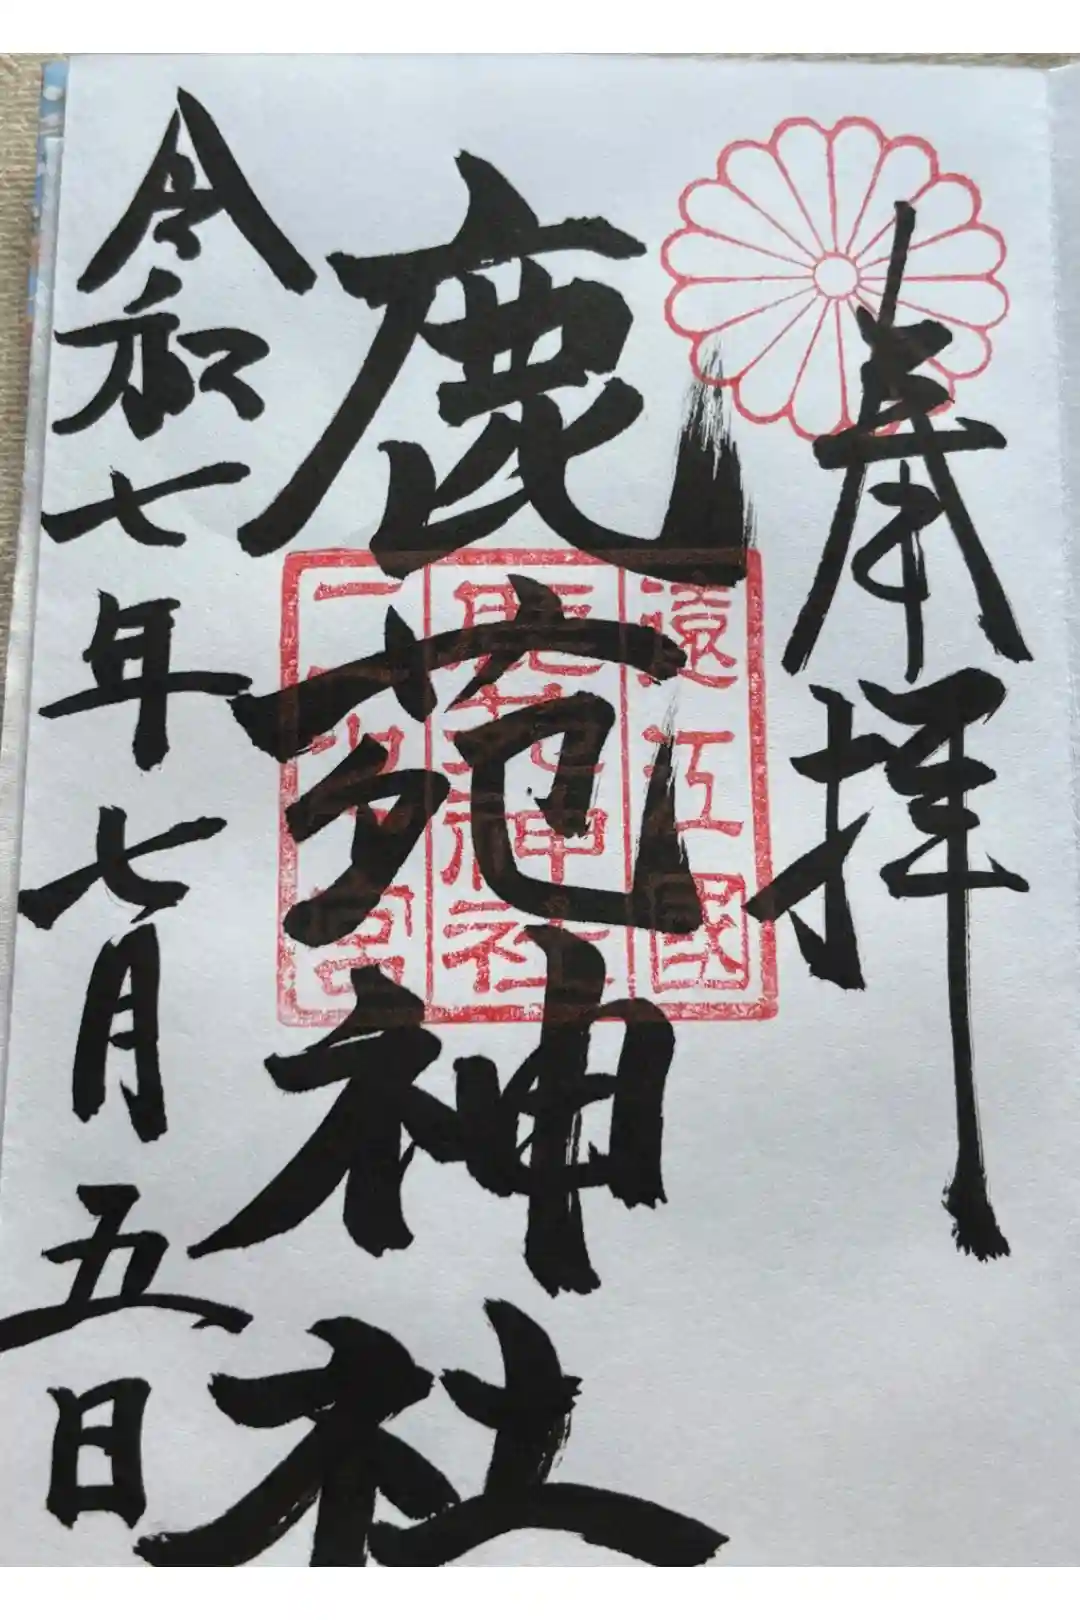 奉拝
遠江國
鹿苑神社
鹿苑神社
二之宮
令和七年七月五日